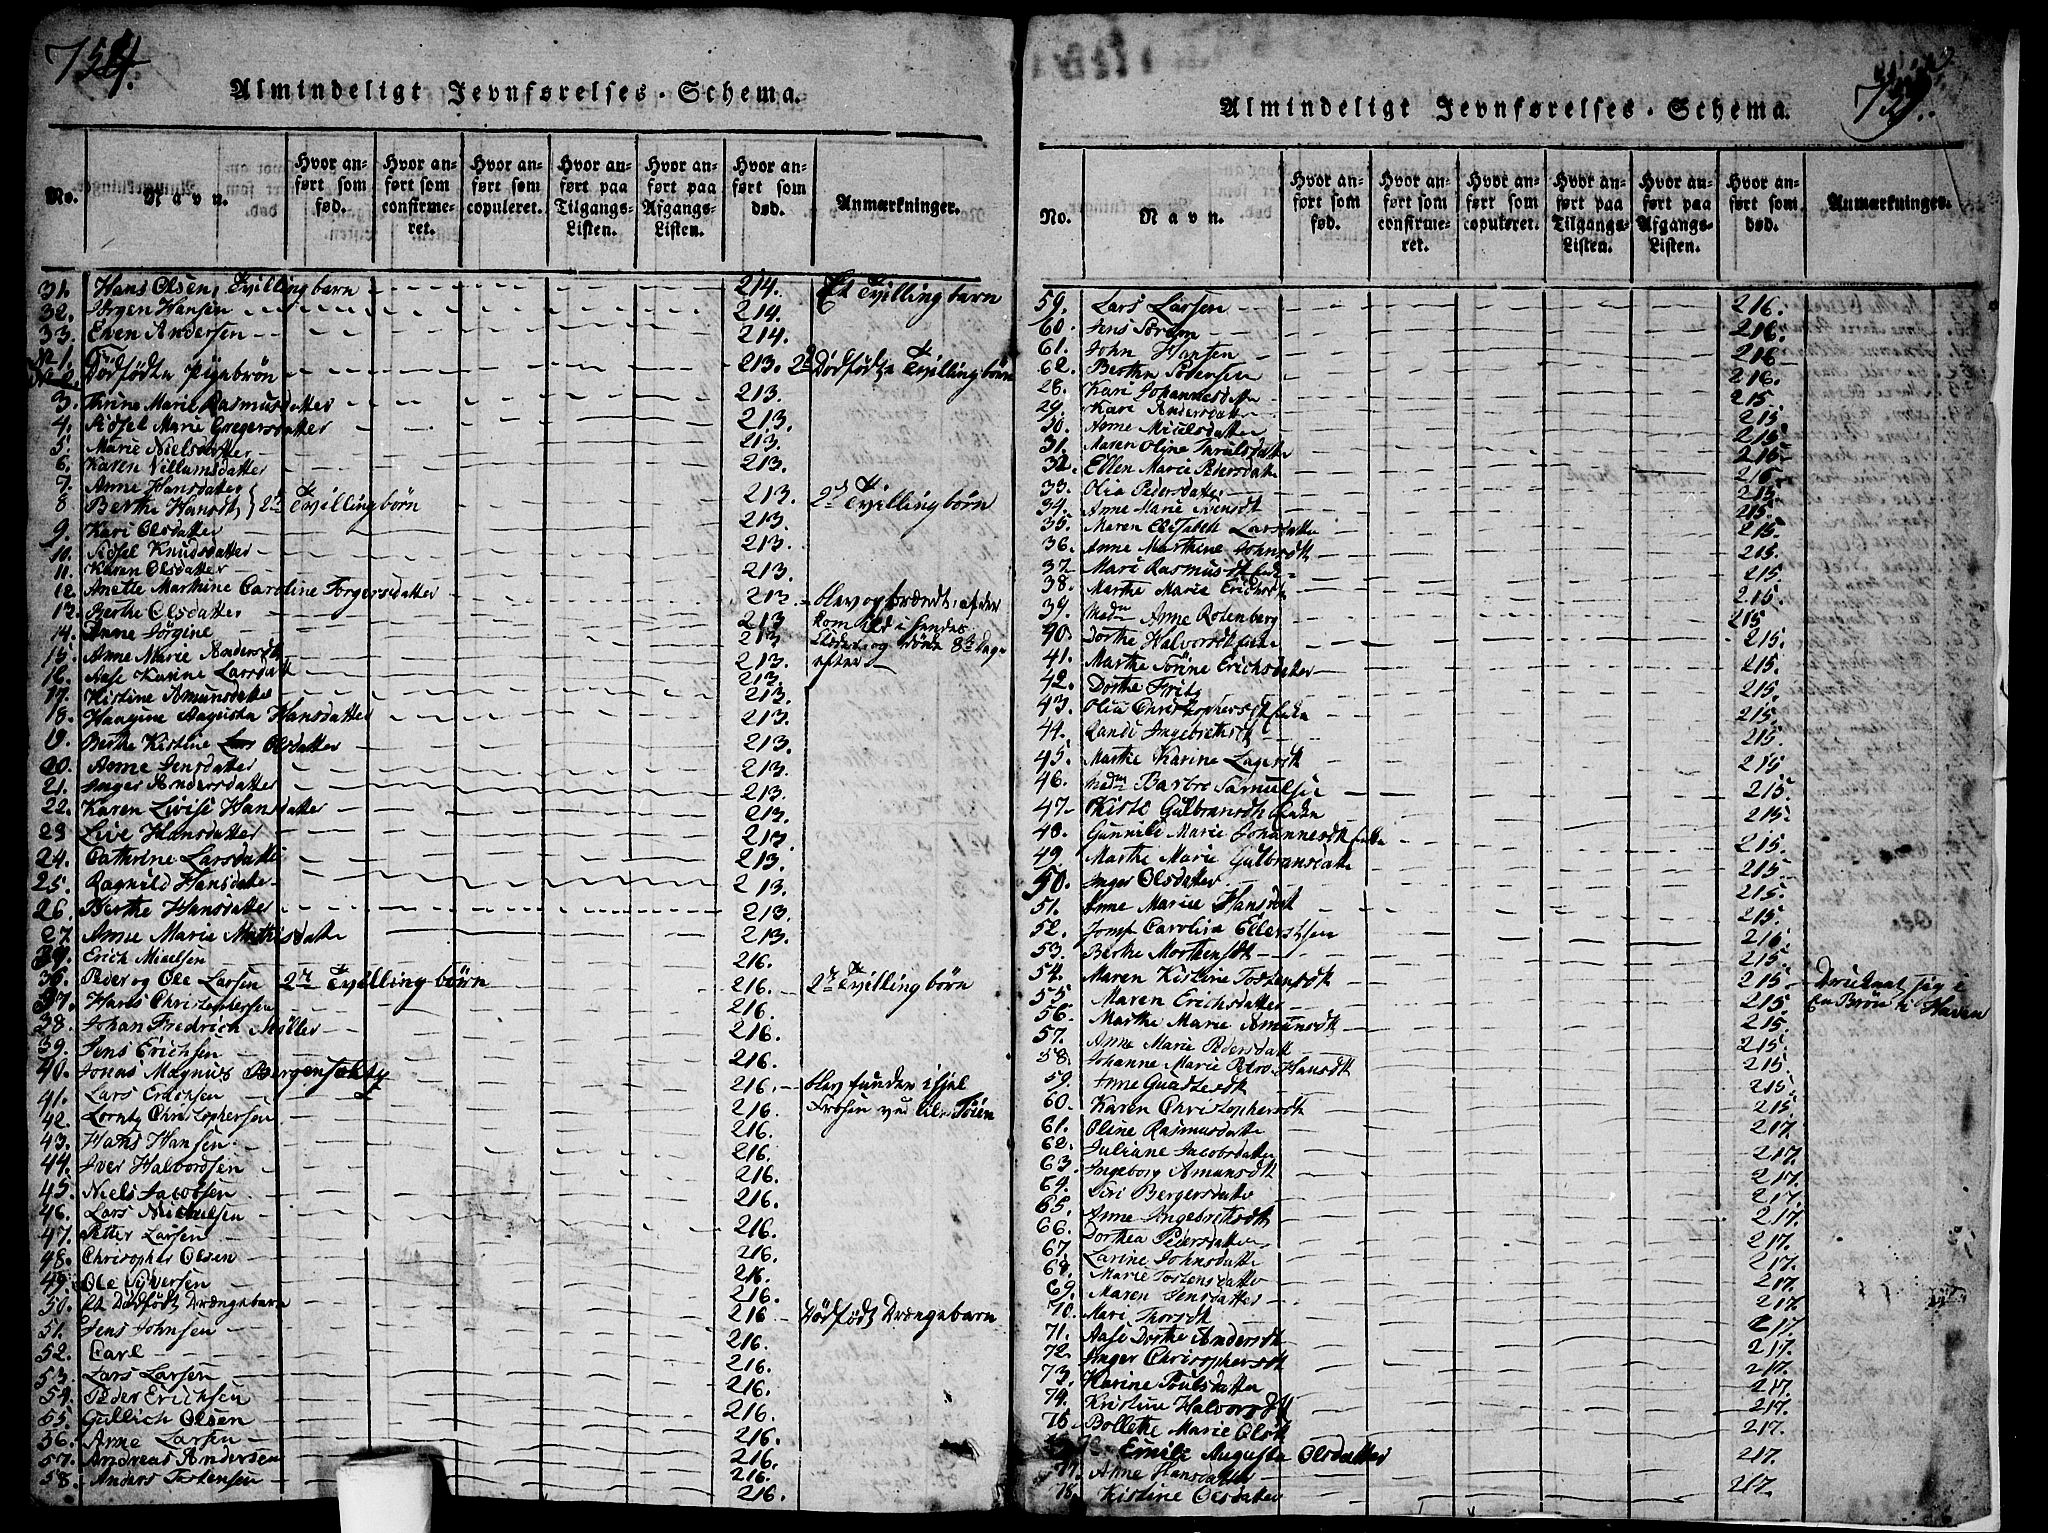 Almindeligt Jevnførelses-Schema.
No. Navn. Hvor anført som fød. Hvor anført som confirmeret. Hvor anført som copuleret. Hvor anført paa Tilgangs-Listen. Hvor anført paa Afgangs-Listen. Hvor anført som død. Anmærkninger.
31. Hans Olsen, Tvilling barn 214. Et Tvilling barn
32. Jørgen Hansen 214.
33. Even Andersen 214.
Dødfødte Pigebrøn 213. 2de Dødfødte Tvilling børn
3. Thrine Marie Rasmusdatter 213.
4. Sidsel Marie Gregersdatter 213.
5. Marie Nielsdatter 213.
6. Karen Villumsdatter 213.
7. Anne Hansdatter
8 Berthe Hansdt } 2de Tvilling børn 213. 2de Tvilling børn
9. Kari Olsdatter 213.
10. Sidsel Knudsdatter 213.
11. Karen Olsdatter 213.
12. Anette Marthine Caroline Torgersdatter 213. blev opbrændt, af der
13. Berthe Olsdatter 213 kom Ild i hendes
14. Anne Jørgine 213 Klæder og døde 8te Dage
15. Anne Marie Andersdtr 213. efter
16. Aase Karine Larsdatt 213.
17. Kistine Amunsdatter 213.
18. Haagine Augusta Hansdatter 213.
19. Berthe Kistine Olsdatter 213.
20. Anne Jensdatter 213.
21. Inger Andersdatter 213.
22. Karen Lovise Hansdatter 213.
23 Live Hansdatter 213.
24. Cathrine Larsdatte 213.
25. Ragnild Hansdatter 213.
26. Berthe Hansdatter 213.
27. Anne Marie Mathisdatte 213.
Erich Mielsen 216.
36. Peder og Ole Larsen 2de Tvilling børn 216. 2de Tvilling børn
37. Hans Christophersen 216.
38. Johan Fredrich Møller 216.
39. Jens Erichsen 216.
40. Jonas Magnus 216. blev funden ihjel
41. Lars Erichsen 216. Frosen ved
42. Lorntz Christophersen 216.
43. Hans Hansen 216.
44. Iver Halvorsen 216.
45. Niels Jacobsen 216.
46. Lars Nichelsen 216.
47. Petter Larsen 216.
48. Christopher Olsen 216.
49. Ole Syversen 216.
50. Et Dødfødt Drængebarn 216 Dødfødt Drængebarn
51. Jens Johnsen 216.
52. Carl 216.
53. Lars Larsen 216.
54. Peder Erichsen 216.
55. Gullich Olsen 216.
56. Arne Larsen 216.
57. Andreas Andersen 216.
58. Anders Tostensen 216.
Almindeligt Jevnførelses-Schema.
No. Navn. Hvor anført som fød. Hvor anført som confirmeret. Hvor anført som copuleret. Hvor anført paa Tilgangs-Listen. Hvor anført paa Afgangs-Listen. Hvor anført som død. Anmærkninger.
59. Lars Larsen 216.
60. Jens 216.
61. John Hansen 216
62. Berthn Sørensen 216.
28. Kari Johannesdatter 215.
29. Kari Andersdatter 215
30. Anne 215.
31. Maren Oline 215
32. Ellen Marie Pedersdatte 215.
33. Olia Pedersdatter 215.
34. Anne Marie Svensdt 215.
35. Maren Elisabeth Larsdatter 215.
36. Anne Marthine Johnsdt 215.
37. Mari Rasmusdt Enke 215.
38. Marthe Marie Erichsdt 215.
39. Madm Anne Rosenberg 215
40. Dorthe Halvorsdt Enke 215.
41. Marthe Sørine Erichsdatter 215.
42. Dorthe Fritz 215.
43. Olia Christophersdt Enke 215.
44. Randi Ingebrethsdt 215.
45. Marthe Karine Lagesdt 215
46. Madm Barbro Samuelsi 215.
47. Kisti Gulbransdt Enke 215.
48. Gunnild Marie Johannesdt Enke 215.
49. Marthe Marie Gulbransdatte 215.
50. Inger Olsdatter 215.
51. Anne Marie Hansdt 215.
52. Jomf Carolina 215.
53. Berthe Morthensdt 215.
54. Maren Kistine Tostensdt 215. Druknet sig i
55. Maren Erichsdatter 215. En Brøn i Haven
56. Marthe Marie Amunsdt 215.
57. Anne Marie Pedersdatt 215.
58. Johanne Marie Hansdt 215.
59. Anne 215.
60. Karen Christophersdt 215.
61. Oline Rasmusdatte 217.
62. Juliane Jacobsdatter 217.
63. Ingeborg Amunsdt 217.
64. Siri Bergersdatte 217.
65. Anne Ingebrethsdt 217.
66. Dorthea Pedersdatter 217.
67. Larine Johnsdatte 217.
68. Marie Tostensdatter 217.
69. Maren Jensdatter 217.
70. Mari Thorsdt 217.
71. Aase Dorthe Andersdt 217.
72. Inger Christophersdt 217.
73. Karine Poulsdatter 217.
74. Kristine Halvorsdt 217.
75. Bollette Marie Olsdt 217.
Emilie Augusta Olsdatter 217.
77. Anne Hansdatter
78. Kistine Olsdatter 217.